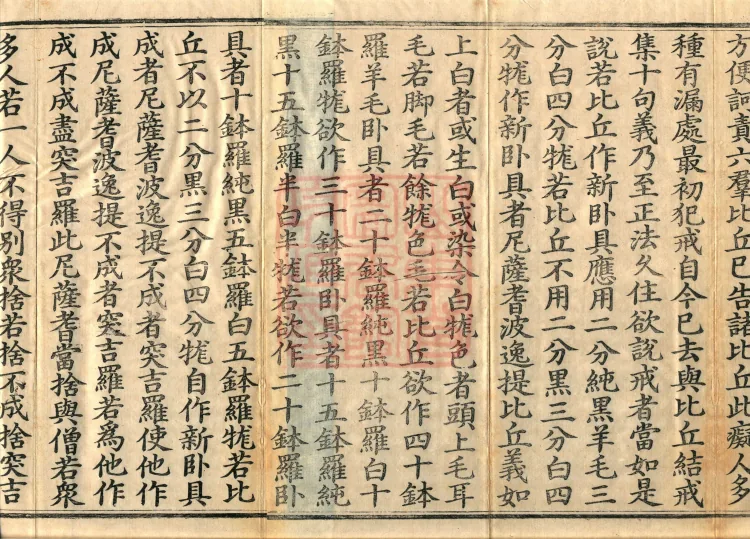 方便訶責六羣比丘已告諸比丘此癡人多
種有漏處最初犯戒自今已去與比丘結戒
集十句義乃至正法久住欲說戒者當如是
說若比丘作新卧具應用二分純黑羊毛三
分白四分牻若比丘不用二分黑三分白四
分牻作新卧具者尼薩耆波逸提比丘義如
上白者或生白或染令白牻色者頭上毛耳
毛若脚毛若餘牻色毛若比丘欲作四十鉢
羅羊毛卧具者二十鉢羅純黑十鉢羅白十
鉢羅牻欲作三十鉢羅卧具者十五鉢羅純
黑十五鉢羅半白半牻若欲作二十鉢羅卧
具者十鉢羅純黑五鉢羅白五鉢羅牻若比
丘不以二分黑三分白四分牻自作新卧具
成者尼薩耆波逸提不成者突吉羅使他作
成尼薩耆波逸提不成者突吉羅若爲他作
成不成盡突吉羅此尼薩耆當捨與僧若衆
多人若一人不得別衆捨若捨不成捨突吉